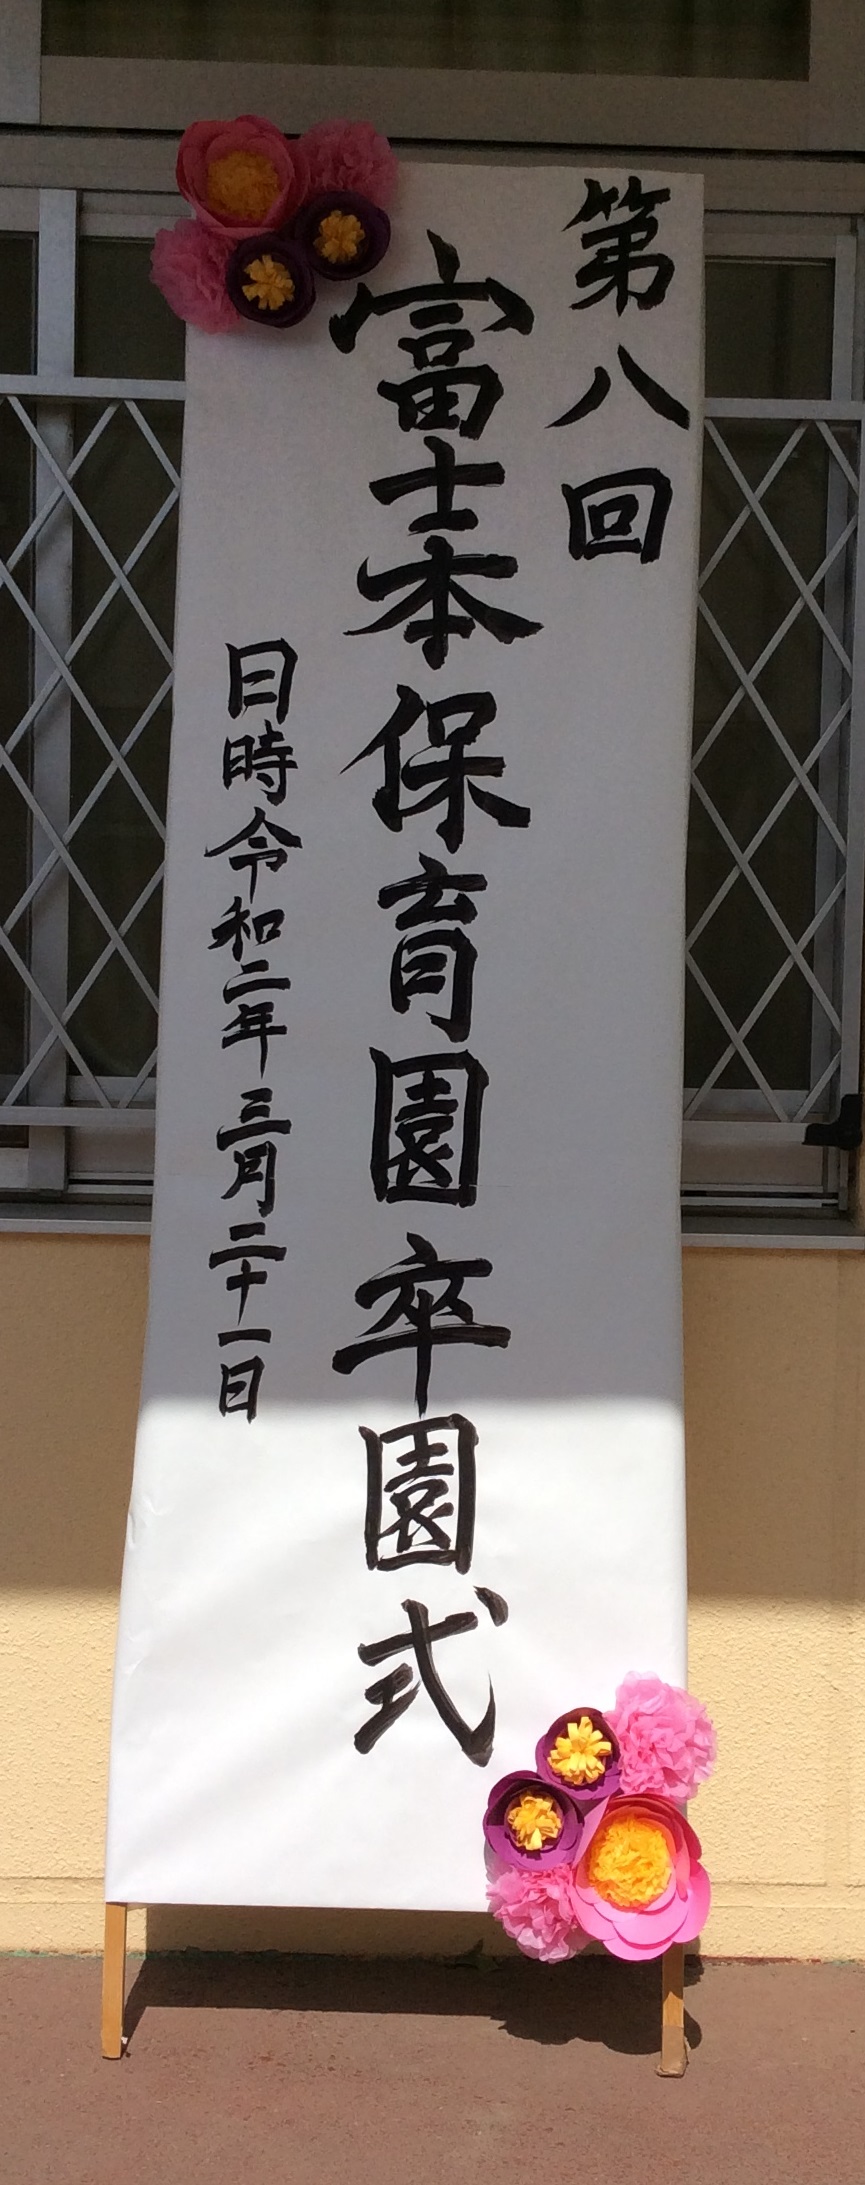 第八回
富士本保育園卒園式
日時令和二年三月二十一日